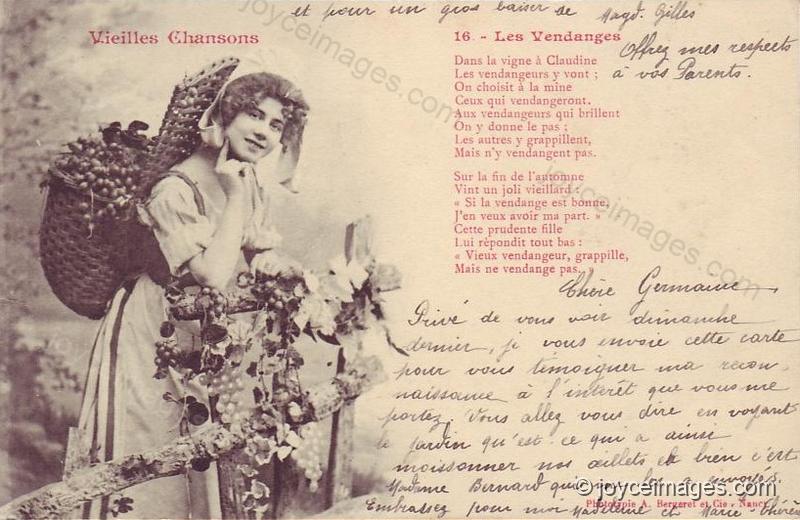 et pour un gros baiser de Magd. Gilles
Vieilles Chansons
16. - Les Vendanges
Offrez mes respects
à vos Parents.
Dans la vigne à Claudine
Les vendangeurs y vont ;
On choisit à la mine
Ceux qui vendangeront.
Aux vendangeurs qui brillent
On y donne le pas ;
Les autres y grappillent,
Mais n'y vendangent pas.
Sur la fin de l'automne
Vint un joli vieillard :
« Si la vendange est bonne,
J'en veux avoir ma part. »
Cette prudente fille
Lui répondit tout bas :
« Vieux vendangeur, grappille,
Mais ne vendange pas. »
Chère Germaine,
Privé de vous voir dimanche
dernier, je vous envoie cette carte
pour vous témoigner ma recon-
naissance à l'intérêt que vous me
portez. Vous allez vous dire en voyant
le jardin qu'est-ce qui a ainsi
moissonner nos œillets eh bien c'est
Madame Bernard qui
Embrassez pour moi Madeleine et Marie Thérèse
Phototypie A. Bergeret et Cie - Nancy
joyceimages.com
joyceimages.com
joyceimages.com
© joyceimages.com